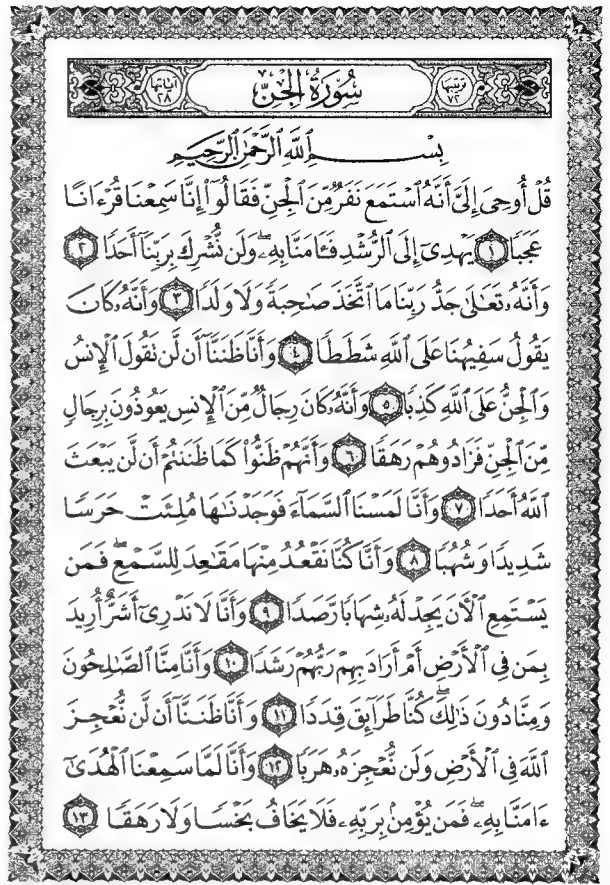 ترتيبها ٧٢ سُورَةُ الْجِنِّ آياتها ٢٨
بِسْمِ ٱللَّهِ ٱلرَّحْمَٰنِ ٱلرَّحِيمِ
قُلْ أُوحِىَ إِلَىَّ أَنَّهُ ٱسْتَمَعَ نَفَرٌ مِّنَ ٱلْجِنِّ فَقَالُوٓا۟ إِنَّا سَمِعْنَا قُرْءَانًا
عَجَبًا ١ يَهْدِىٓ إِلَى ٱلرُّشْدِ فَـَٔامَنَّا بِهِۦ ۖ وَلَن نُّشْرِكَ بِرَبِّنَآ أَحَدًا ٢
وَأَنَّهُۥ تَعَٰلَىٰ جَدُّ رَبِّنَا مَا ٱتَّخَذَ صَٰحِبَةً وَلَا وَلَدًا ٣ وَأَنَّهُۥ كَانَ
يَقُولُ سَفِيهُنَا عَلَى ٱللَّهِ شَطَطًا ٤ وَأَنَّا ظَنَنَّآ أَن لَّن تَقُولَ ٱلْإِنسُ
وَٱلْجِنُّ عَلَى ٱللَّهِ كَذِبًا ٥ وَأَنَّهُۥ كَانَ رِجَالٌ مِّنَ ٱلْإِنسِ يَعُوذُونَ بِرِجَالٍ
مِّنَ ٱلْجِنِّ فَزَادُوهُمْ رَهَقًا ٦ وَأَنَّهُمْ ظَنُّوا۟ كَمَا ظَنَنتُمْ أَن لَّن يَبْعَثَ
ٱللَّهُ أَحَدًا ٧ وَأَنَّا لَمَسْنَا ٱلسَّمَآءَ فَوَجَدْنَٰهَا مُلِئَتْ حَرَسًا
شَدِيدًا وَشُهُبًا ٨ وَأَنَّا كُنَّا نَقْعُدُ مِنْهَا مَقَٰعِدَ لِلسَّمْعِ ۖ فَمَن
يَسْتَمِعِ ٱلْـَٔانَ يَجِدْ لَهُۥ شِهَابًا رَّصَدًا ٩ وَأَنَّا لَا نَدْرِىٓ أَشَرٌّ أُرِيدَ
بِمَن فِى ٱلْأَرْضِ أَمْ أَرَادَ بِهِمْ رَبُّهُمْ رَشَدًا ١٠ وَأَنَّا مِنَّا ٱلصَّٰلِحُونَ
وَمِنَّا دُونَ ذَٰلِكَ ۖ كُنَّا طَرَآئِقَ قِدَدًا ١١ وَأَنَّا ظَنَنَّآ أَن لَّن نُّعْجِزَ
ٱللَّهَ فِى ٱلْأَرْضِ وَلَن نُّعْجِزَهُۥ هَرَبًا ١٢ وَأَنَّا لَمَّا سَمِعْنَا ٱلْهُدَىٰٓ
ءَامَنَّا بِهِۦ ۖ فَمَن يُؤْمِنۢ بِرَبِّهِۦ فَلَا يَخَافُ بَخْسًا وَلَا رَهَقًا ١٣